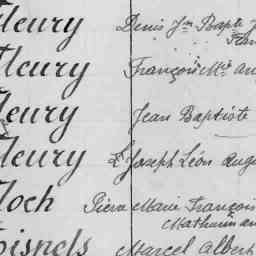 Fleury Denis Jn Bapte J
Fleury François Mie Au
Fleury Jean Baptiste
Fleury Joseph Léon Aug
Floch Pierre Marie François
Mathurin
Marcel Albert